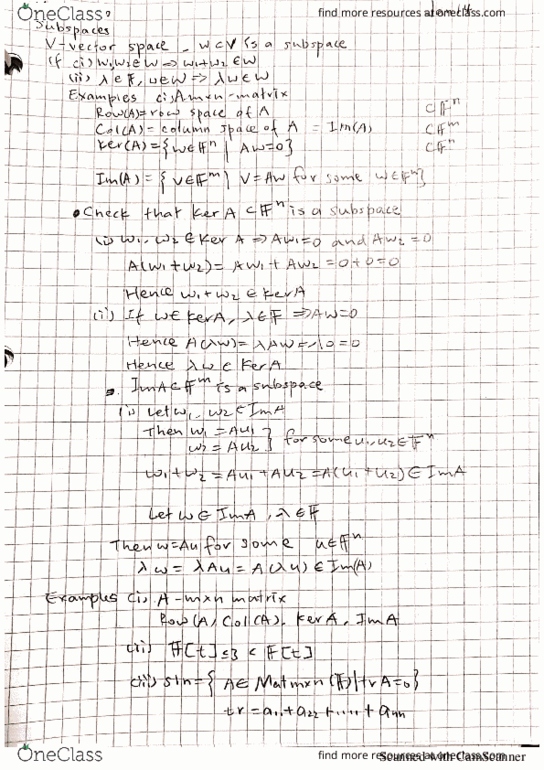 OneClass
find more resources at oneclass.com
Subspaces
V-vector space, W⊂V is a subspace
if (i) w₁,w₂∈W ⇒ w₁+w₂ ∈W
(ii) λ∈F, w∈W ⇒ λw∈W
Examples (i) Amxn-matrix
Row(A)=row space of A ⊂Fⁿ
Col(A)=column space of A = Im(A) ⊂Fᵐ
Ker(A)={w∈Fⁿ | Aw=0} ⊂Fⁿ
Im(A)={v∈Fᵐ | v=Aw for some w∈Fⁿ}
•Check that Ker A ⊂Fⁿ is a subspace
(i) w₁, w₂ ∈ Ker A ⇒ Aw₁=0 and Aw₂=0
A(w₁+w₂)= Aw₁+Aw₂ =0+0=0
Hence w₁+w₂ ∈ KerA
(ii) If w∈KerA, λ∈F ⇒Aw=0
Hence A(λw)=λAw=λ0=0
Hence λw ∈ KerA
•. ImA⊂Fᵐ is a subspace
(i) Let w₁, w₂ ∈ImA
Then w₁=Au₁
w₂=Au₂ } for some u₁,u₂∈Fⁿ
w₁+w₂=Au₁+Au₂=A(u₁+u₂)∈ImA
Let w∈ImA, λ∈F
Then w=Au for some u∈Fⁿ
λw = λAu=A(λu)∈Im(A)
Examples (i) A-mxn matrix
Row(A, Col(A), KerA, ImA
(ii) F[t]≤3 ⊂ F[t]
(iii) sln={ A∈Matmxn(F)|trA=0}
tr=a₁₁+a₂₂+.....+ann
OneClass
find more resources at oneclass.com
Scanned with CamScanner